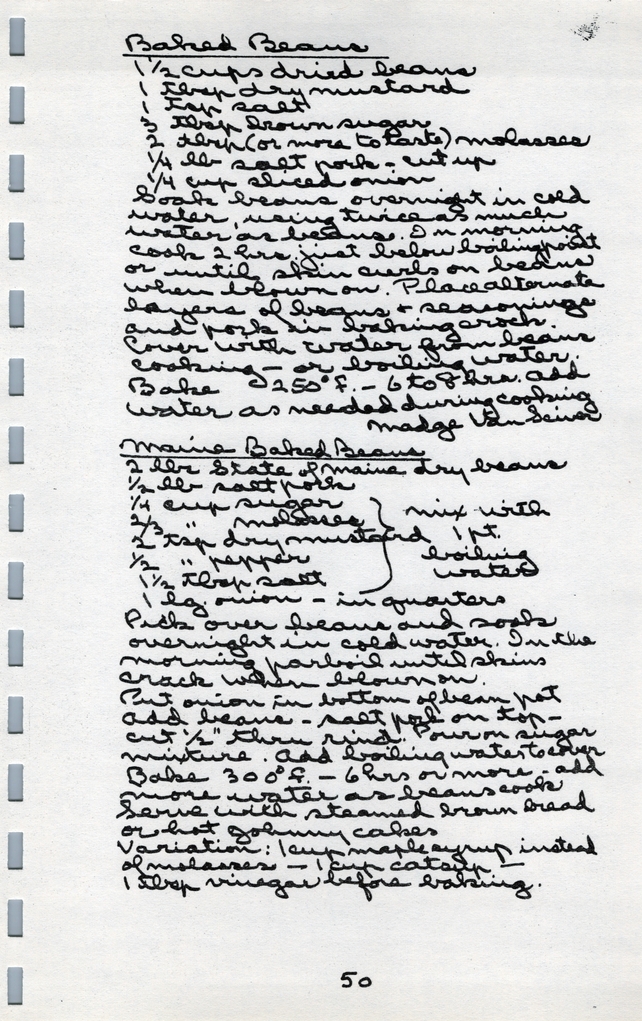 Baked Beans
1 1/2 cups dried beans
1 tbsp dry mustard
1 tsp salt
3 tbsp brown sugar
2 tbsp (or more to taste) molasses
1/4 lb salt pork - cut up
1/4 cup sliced onion
Soak beans overnight in cold
water, using twice as much
water as beans. In morning
cook 2 hrs. just below boiling point
or until skin curls on beans
when blown on. Place alternate
layers of beans + seasonings
and pork in baking crock.
Cover with water from beans
cooking - or boiling water.
Bake 250°f. - 6 to 8 hrs. add
water as needed during cooking
Madge Van Sciver
Maine Baked Beans
2 lbs State of Maine dry beans
1/2 lb salt pork
1/4 cup sugar
2/3 " molasses
2 tsp dry mustard
1/2 " pepper
1 1/2 tbsp salt
mix with
1 pt.
boiling
water
1 lg onion - in quarters
Pick over beans and soak
overnight in cold water. In the
morning parboil until skins
crack when blown on.
Put onion in bottom of bean pot
add beans - salt pork on top -
cut 1/2" thru rind. Pour on sugar
mixture. Add boiling water to cover
Bake 300°f. - 6 hrs or more - add
more water as beans cook
Serve with steamed brown bread
or hot Johnny cakes
Variation: 1 cup maple syrup instead
of molasses - 1 cup catsup -
1 tbsp vinegar before baking.
50